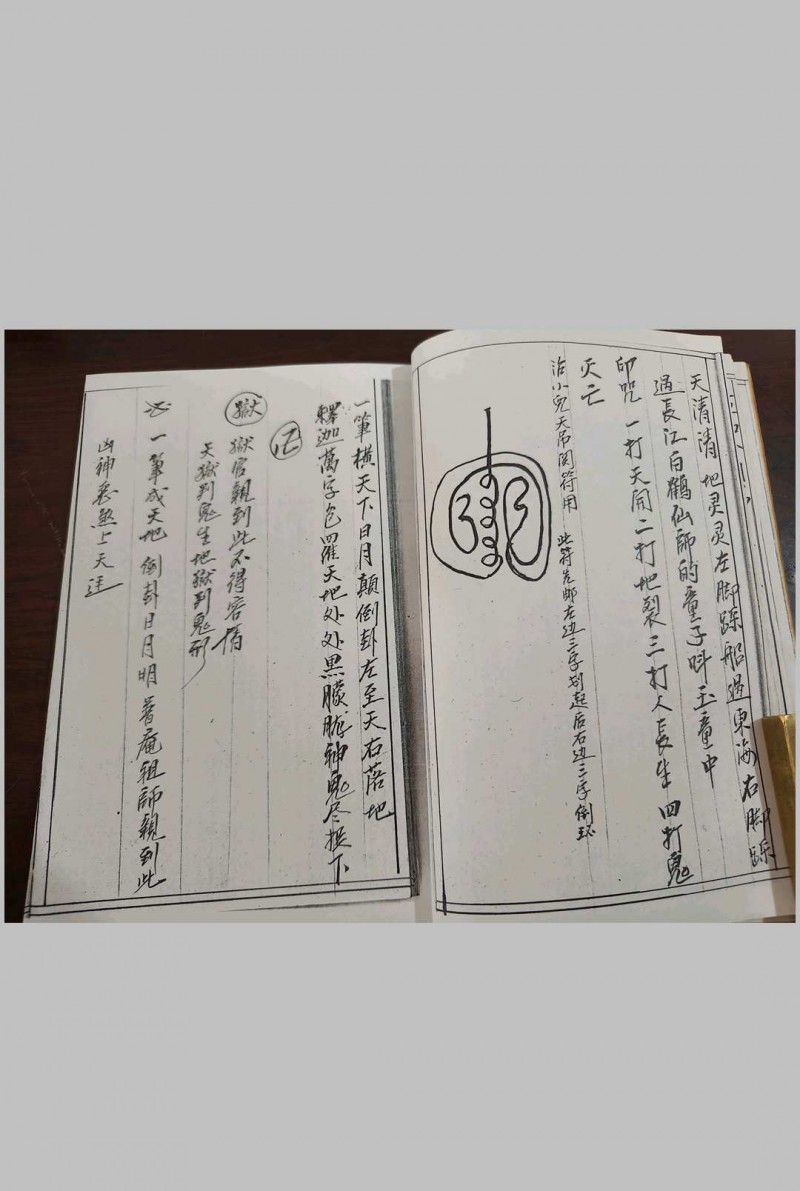 天清清 地灵灵 左脚踩船過東海 右脚踩
過長江 白鶴仙師的童子 叫玉童中
印咒 一打天開 二打地裂 三打人長生 四打鬼
灭亡
治小兒天吊関符用 此符先邮左边三字划起后右边三字倒
一筆横天下 日月顛倒卦 左至天右落地
釋迦萬字包羅天地 处处黑朦胧 神鬼尽抿下
卍
獄 獄官親到此 不得容情
天獄到鬼生 地獄到鬼形
一筆成天地 倒卦日月明 普庵祖師親到此
凶神惡煞上天